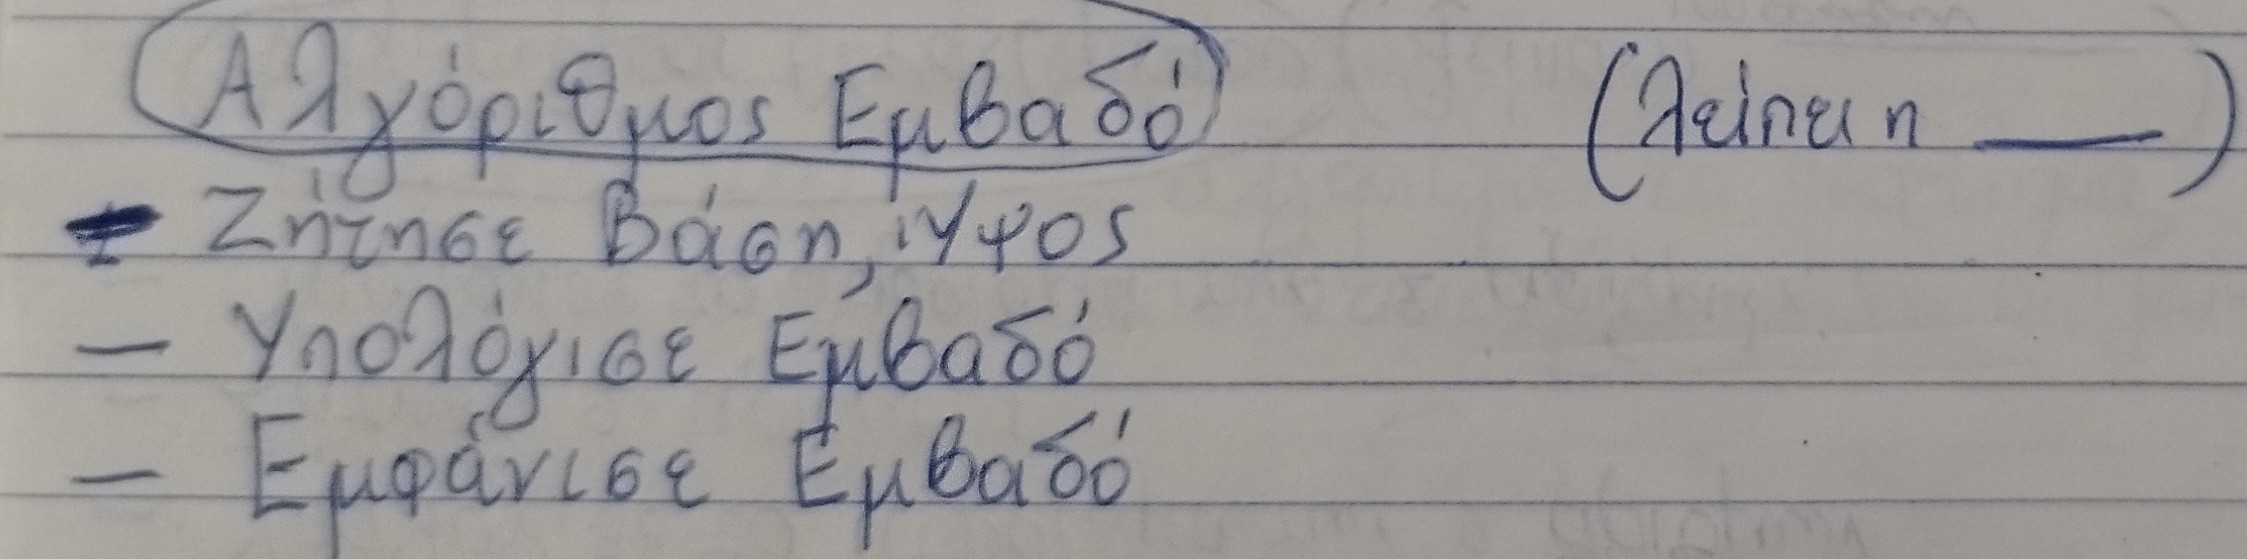 Αλγόριθμος Εμβαδό (λείπει η ___)
- Ζήτησε Βάση, Ύψος
- Υπολόγισε Εμβαδό
- Εμφάνισε Εμβαδό